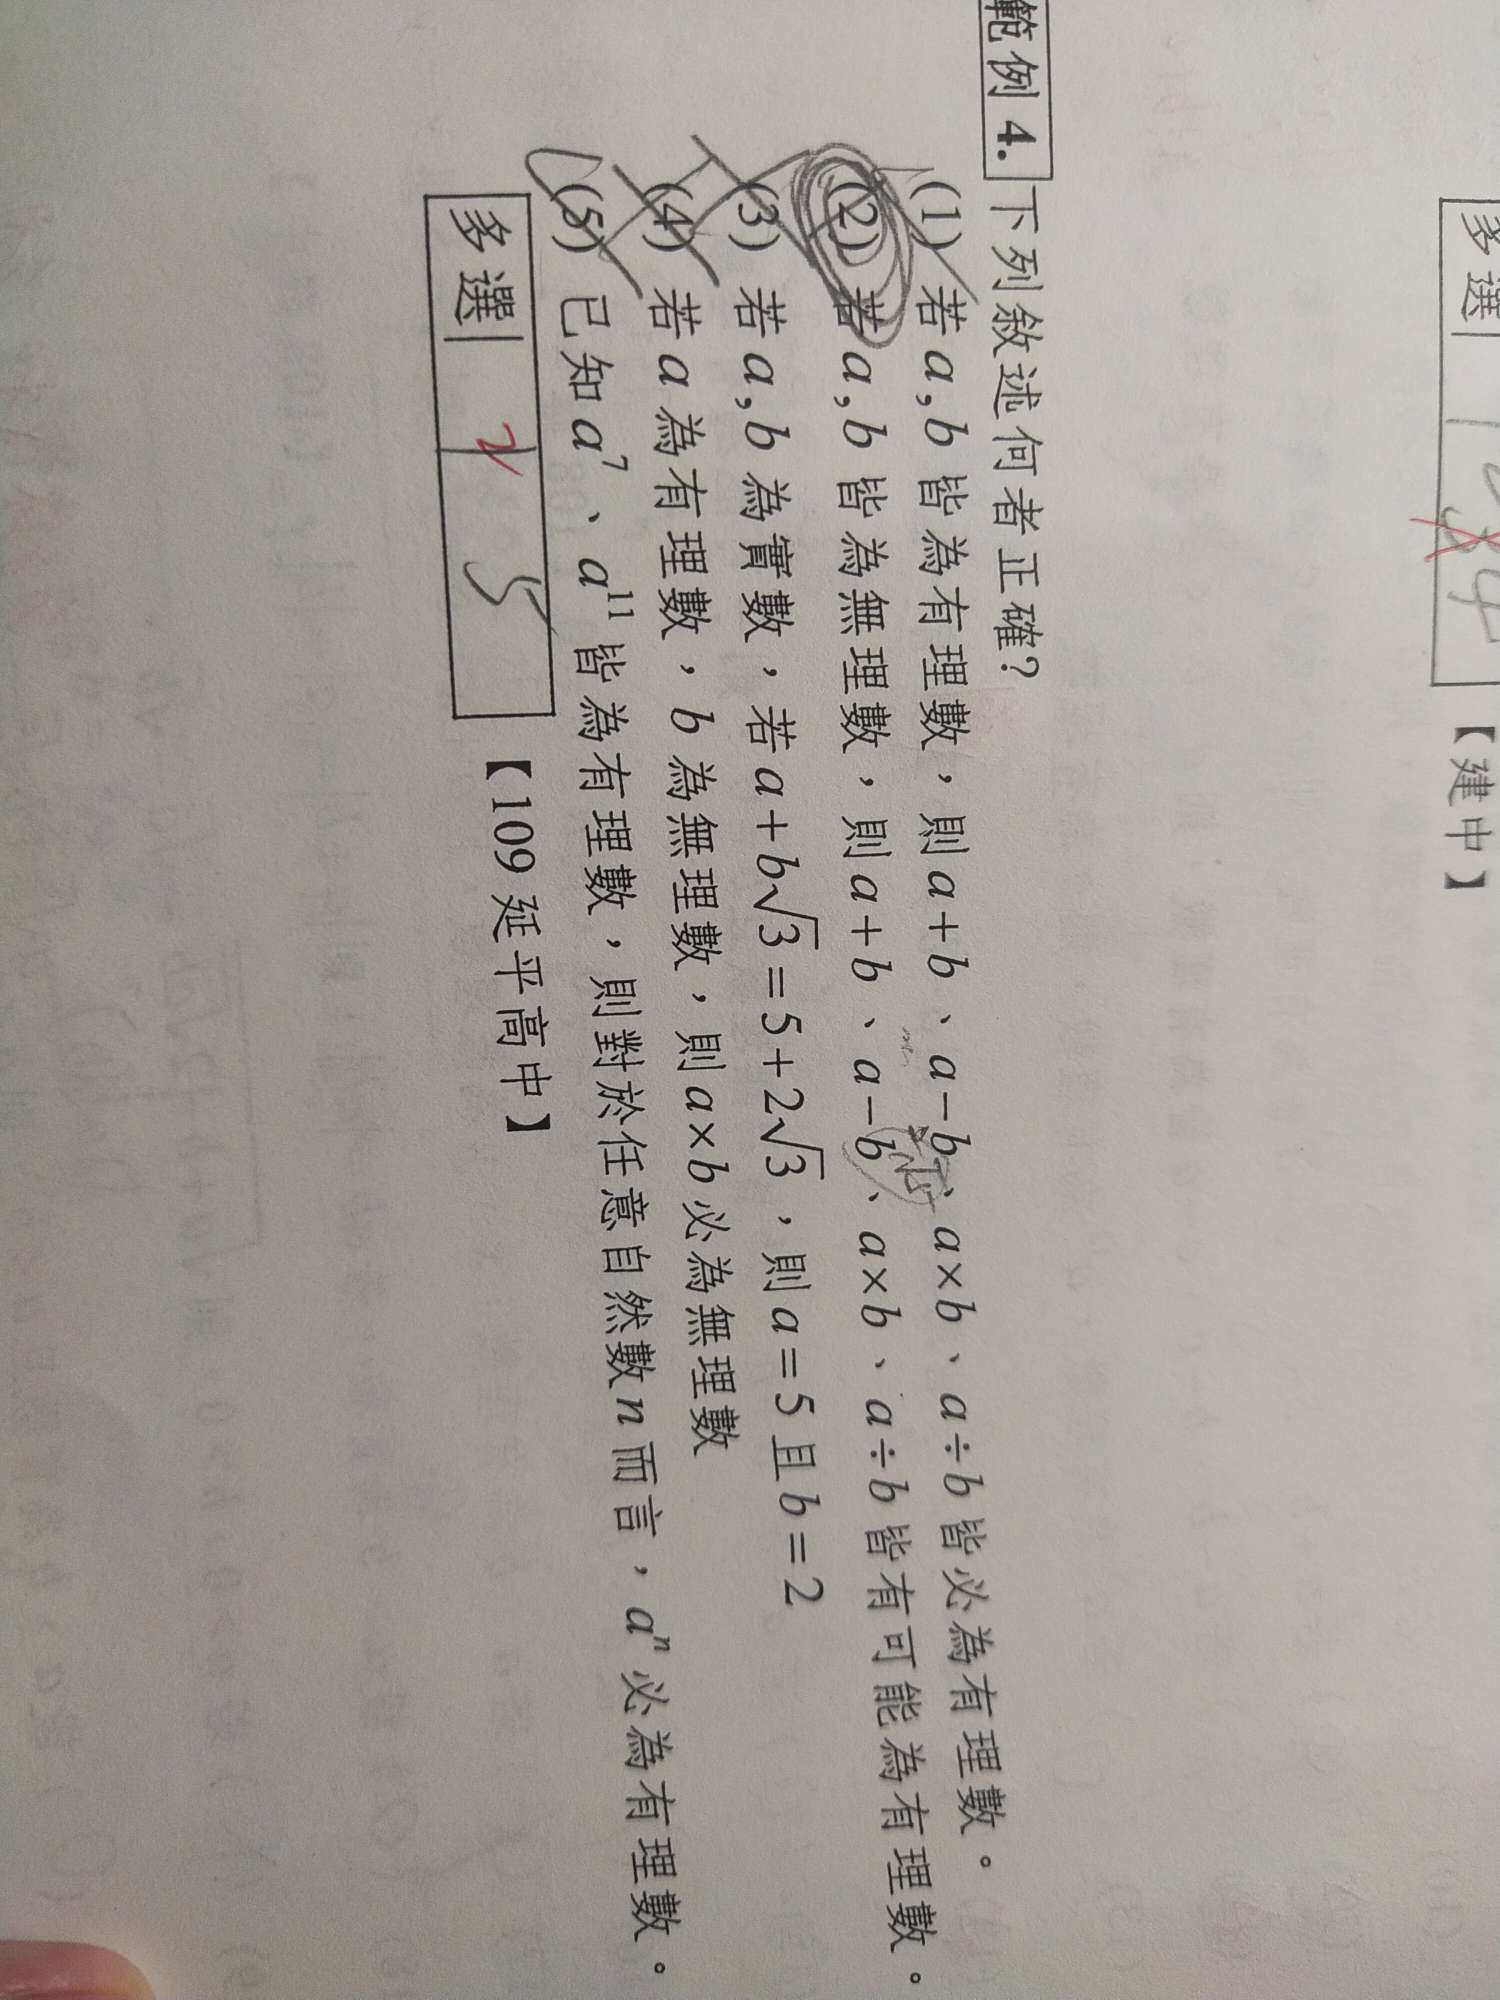 多選
【建中】
範例 4. 下列敘述何者正確?
(1) 若a,b皆為有理數,則a+b、a−b、a×b、a÷b皆必為有理數。
(2) 若a,b皆為無理數,則a+b、a−b、a×b、a÷b皆有可能為有理數。
(3) 若a,b為實數,若a+b√3=5+2√3,則a=5且b=2
(4) 若a為有理數,b為無理數,則a×b必為無理數
(5) 已知a⁷、a¹¹皆為有理數,則對於任意自然數n而言,aⁿ必為有理數。
多選 2 5 【109延平高中】